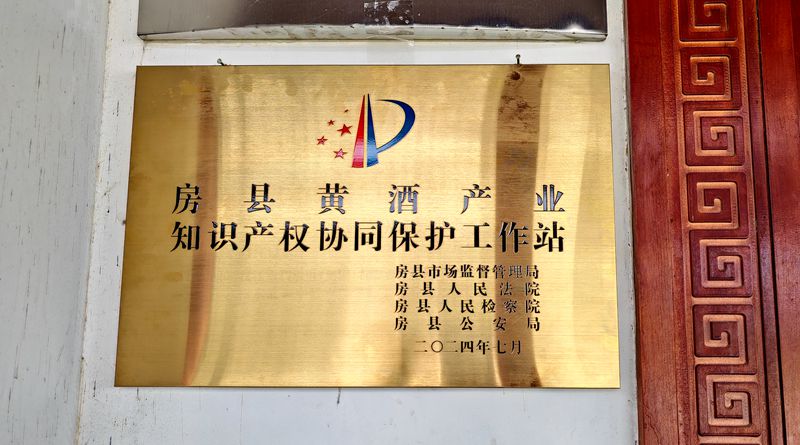 房县黄酒产业
知识产权协同保护工作站
房县市场监督管理局
房县人民法院
房县人民检察院
房县公安局
二〇二四年七月